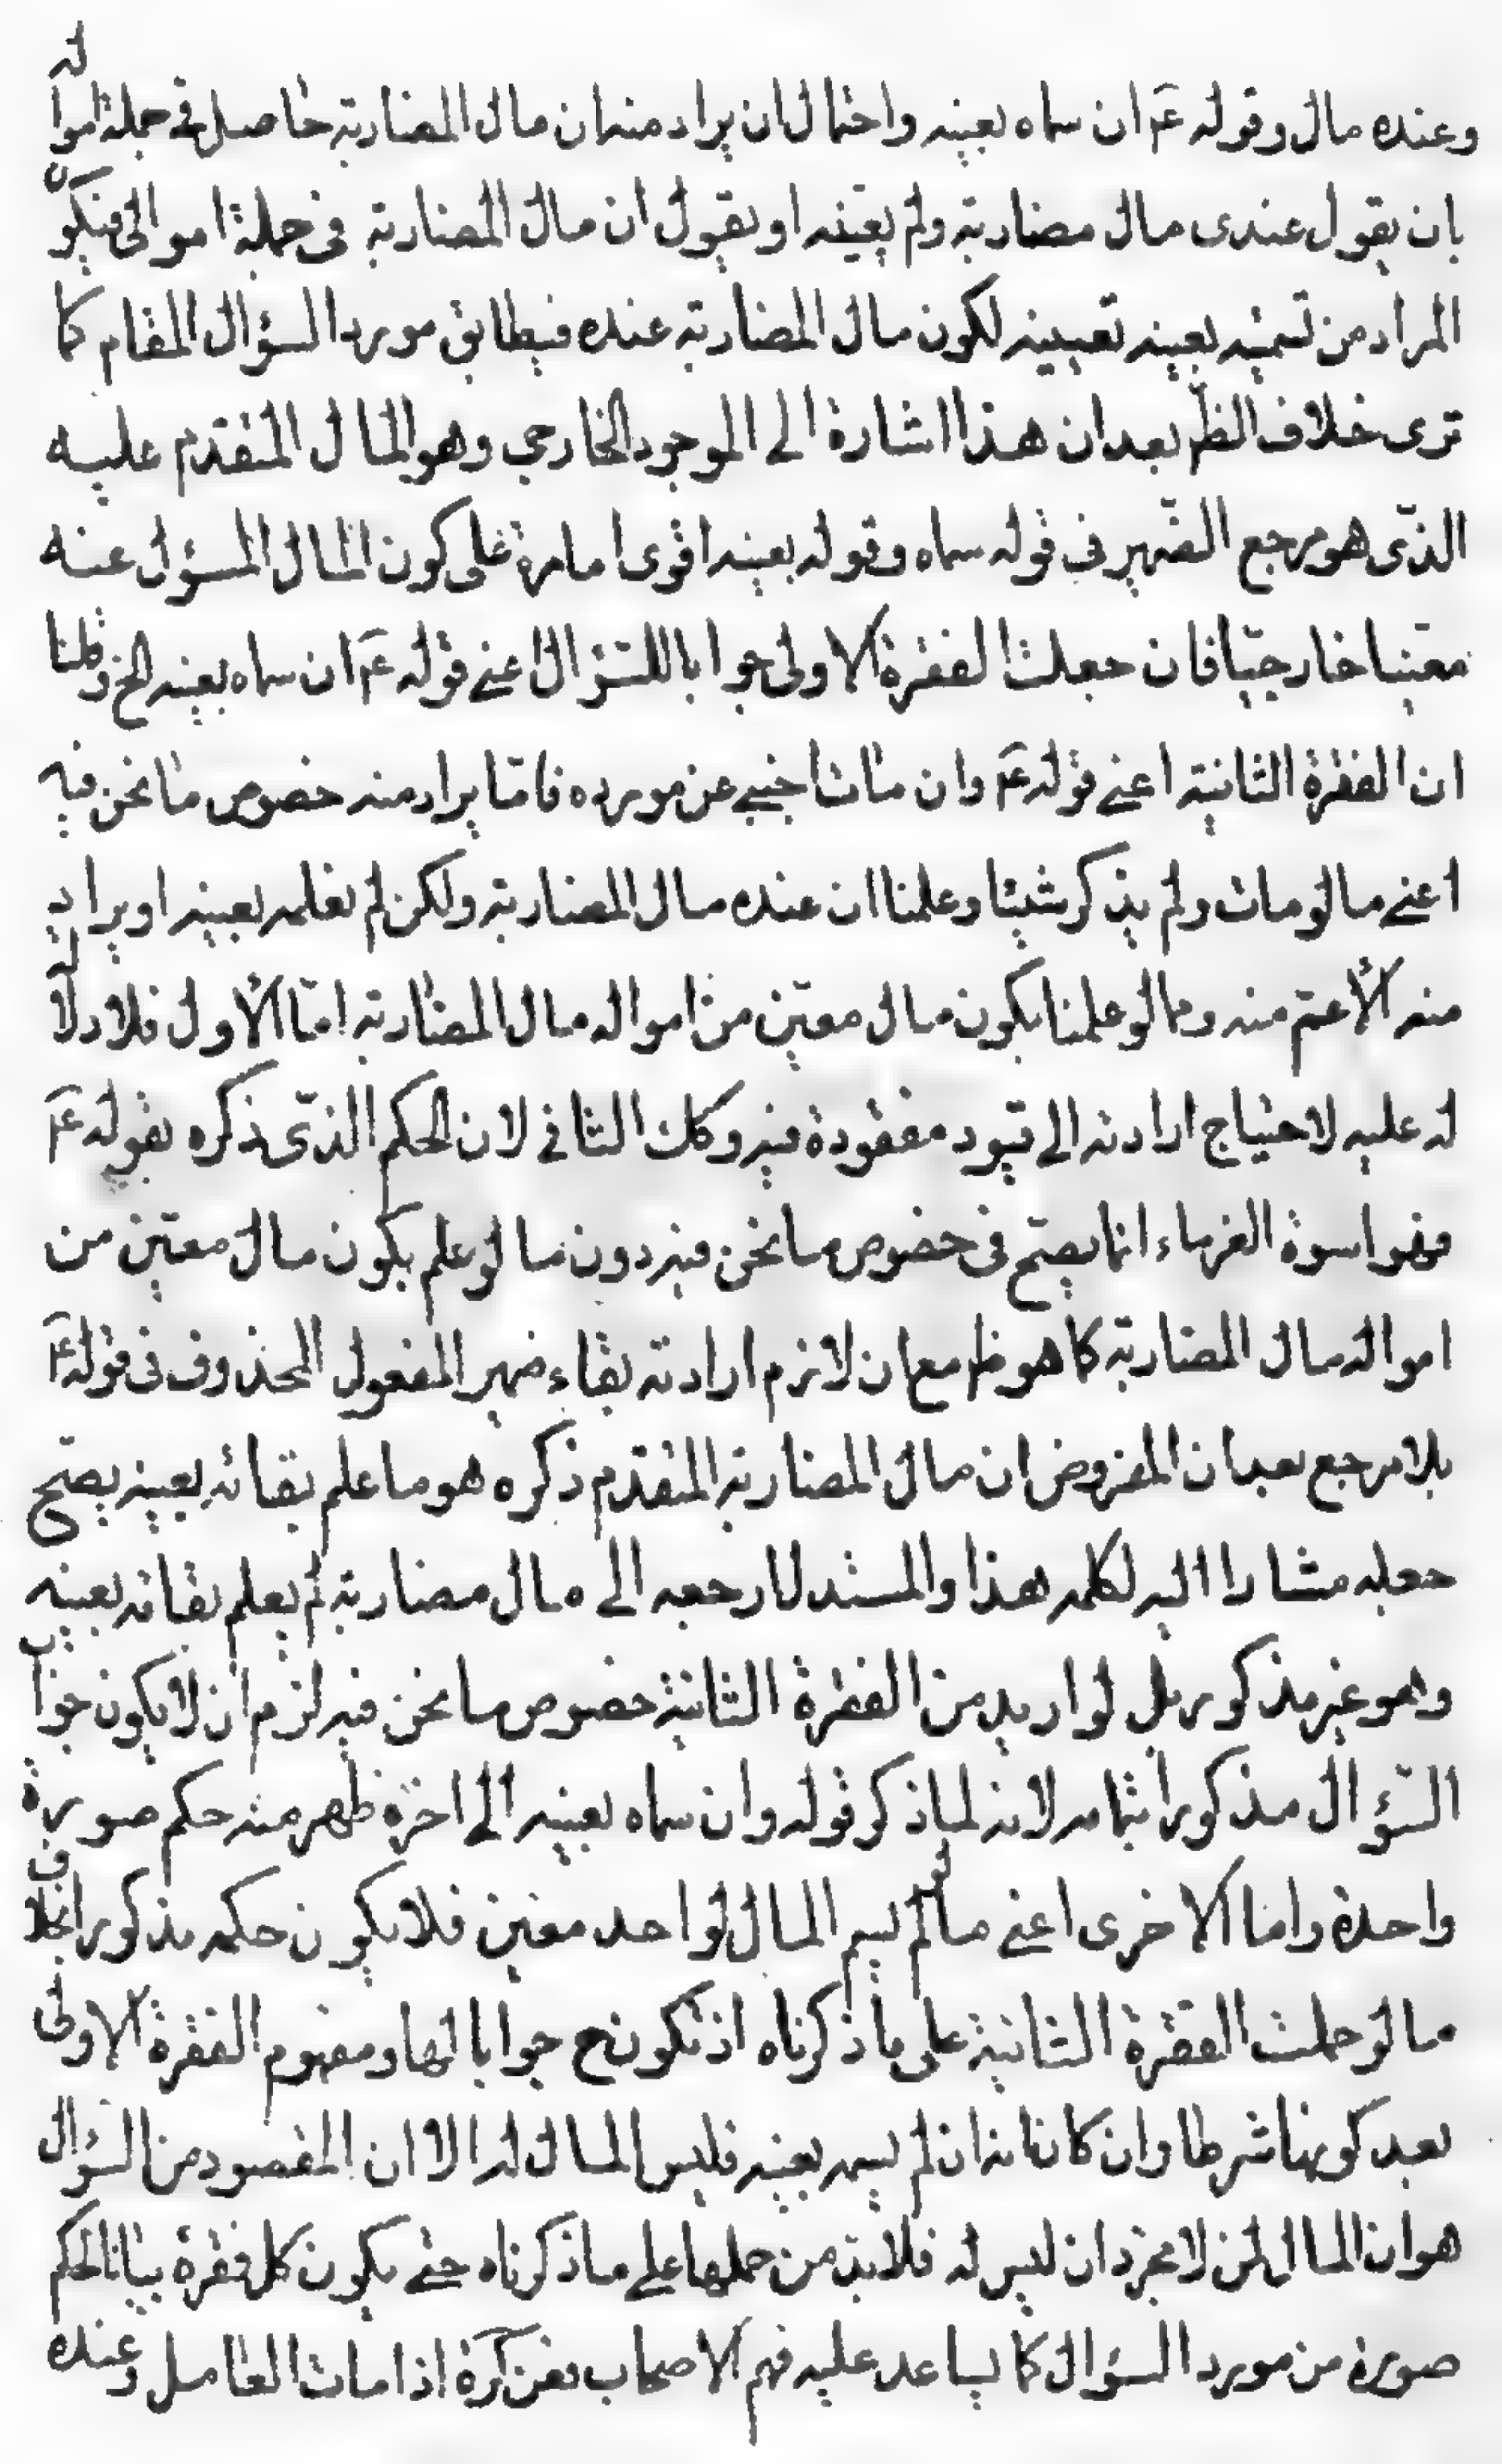 وعنده مال وقوله عَم ان سماه بعينه واحتمال ان يراد منه ان مال المضاربة حاصل في جملة امواله
بان يقول عندى مال مضاربة ولم يعينه او يقول ان مال المضاربة فى جملة اموالى فيكون
المراد من تسميته بعينه تعيينه لكون مال المضاربة عنده فيطابق مورد السؤال المقام كما
ترى خلاف الظّ بعد ان هذا اشارة الى الموجود الخارجى وهو المال المتقدم عليه
الذّى هو مرجع الضّمير فى قوله سماه وقوله بعينه اقوى امارة على كون المال المسؤل عنه
معيّنا خارجيّا فان جعلت الفقرة الاولى جوابا للسّؤال اعنى قوله عَم ان سماه بعينه الخ وقلنا
ان الفقرة الثانية اعنى قوله عَم وان مات اجنبى عن مورده فامّا يراد منه خصوص ما نحن فيه
اعنى ما لو مات ولم يذكر شيئا وعلمنا ان عنده مال المضاربة ولكن لم نعلمه بعينه او يراد
منه الأعمّ منه ومما لو علمنا بكون مال معيّن من امواله مال المضاربة امّا الأول فلا دلالة
له عليه لاحتياج ارادته الى قيود مفقودة فيه وكك الثانى لان الحكم الذّى ذكره بقوله عَم
فهو اسوة الغرماء انما يصحّ فى خصوص ما نحن فيه دون ما لو علم بكون مال معيّن من
امواله مال المضاربة كما هو ظ مع ان لازم ارادته بقاء ضمير المفعول المحذوف فى قوله عَم
بلا مرجع بعد ان المفروض ان مال المضاربة المتقدم ذكره هو ما علم بقائه بعينه يصحّ
جعله مشارا اليه لكلمه هذا والمستدل ارجعه الى مال مضاربة لم يعلم بقائه بعينه
وهو غير مذكور بل لو اريد من الفقرة الثانية خصوص ما نحن فيه لزم ان لا يكون جواب
السّؤال مذكورا بتمامه لانه لما ذكر قوله وان سماه بعينه الى اخره ظهر منه حكم صورة
واحدة واما الاخرى اعنى ما لو لم يسم المال لواحد معين فلا يكون حكمه مذكورا بخلاف
ما لو حملت الفقرة الثانية على ما ذكرناه اذ تكون ح جوابا لها ومفهوم الفقرة الاولى
بعد كونها شرطا وان كان انه ان لم يسمه بعينه فليس المال له الا ان المقصود من السؤال
هو ان المال لمن لا مجرد ان ليس له فلا بدّ من حملها على ما ذكرناه حتى يكون كل فقرة بيانا لحكم
صورة من مورد السؤال كما يساعد عليه فهم الاصحاب فعن كرة اذا مات العامل وعنده